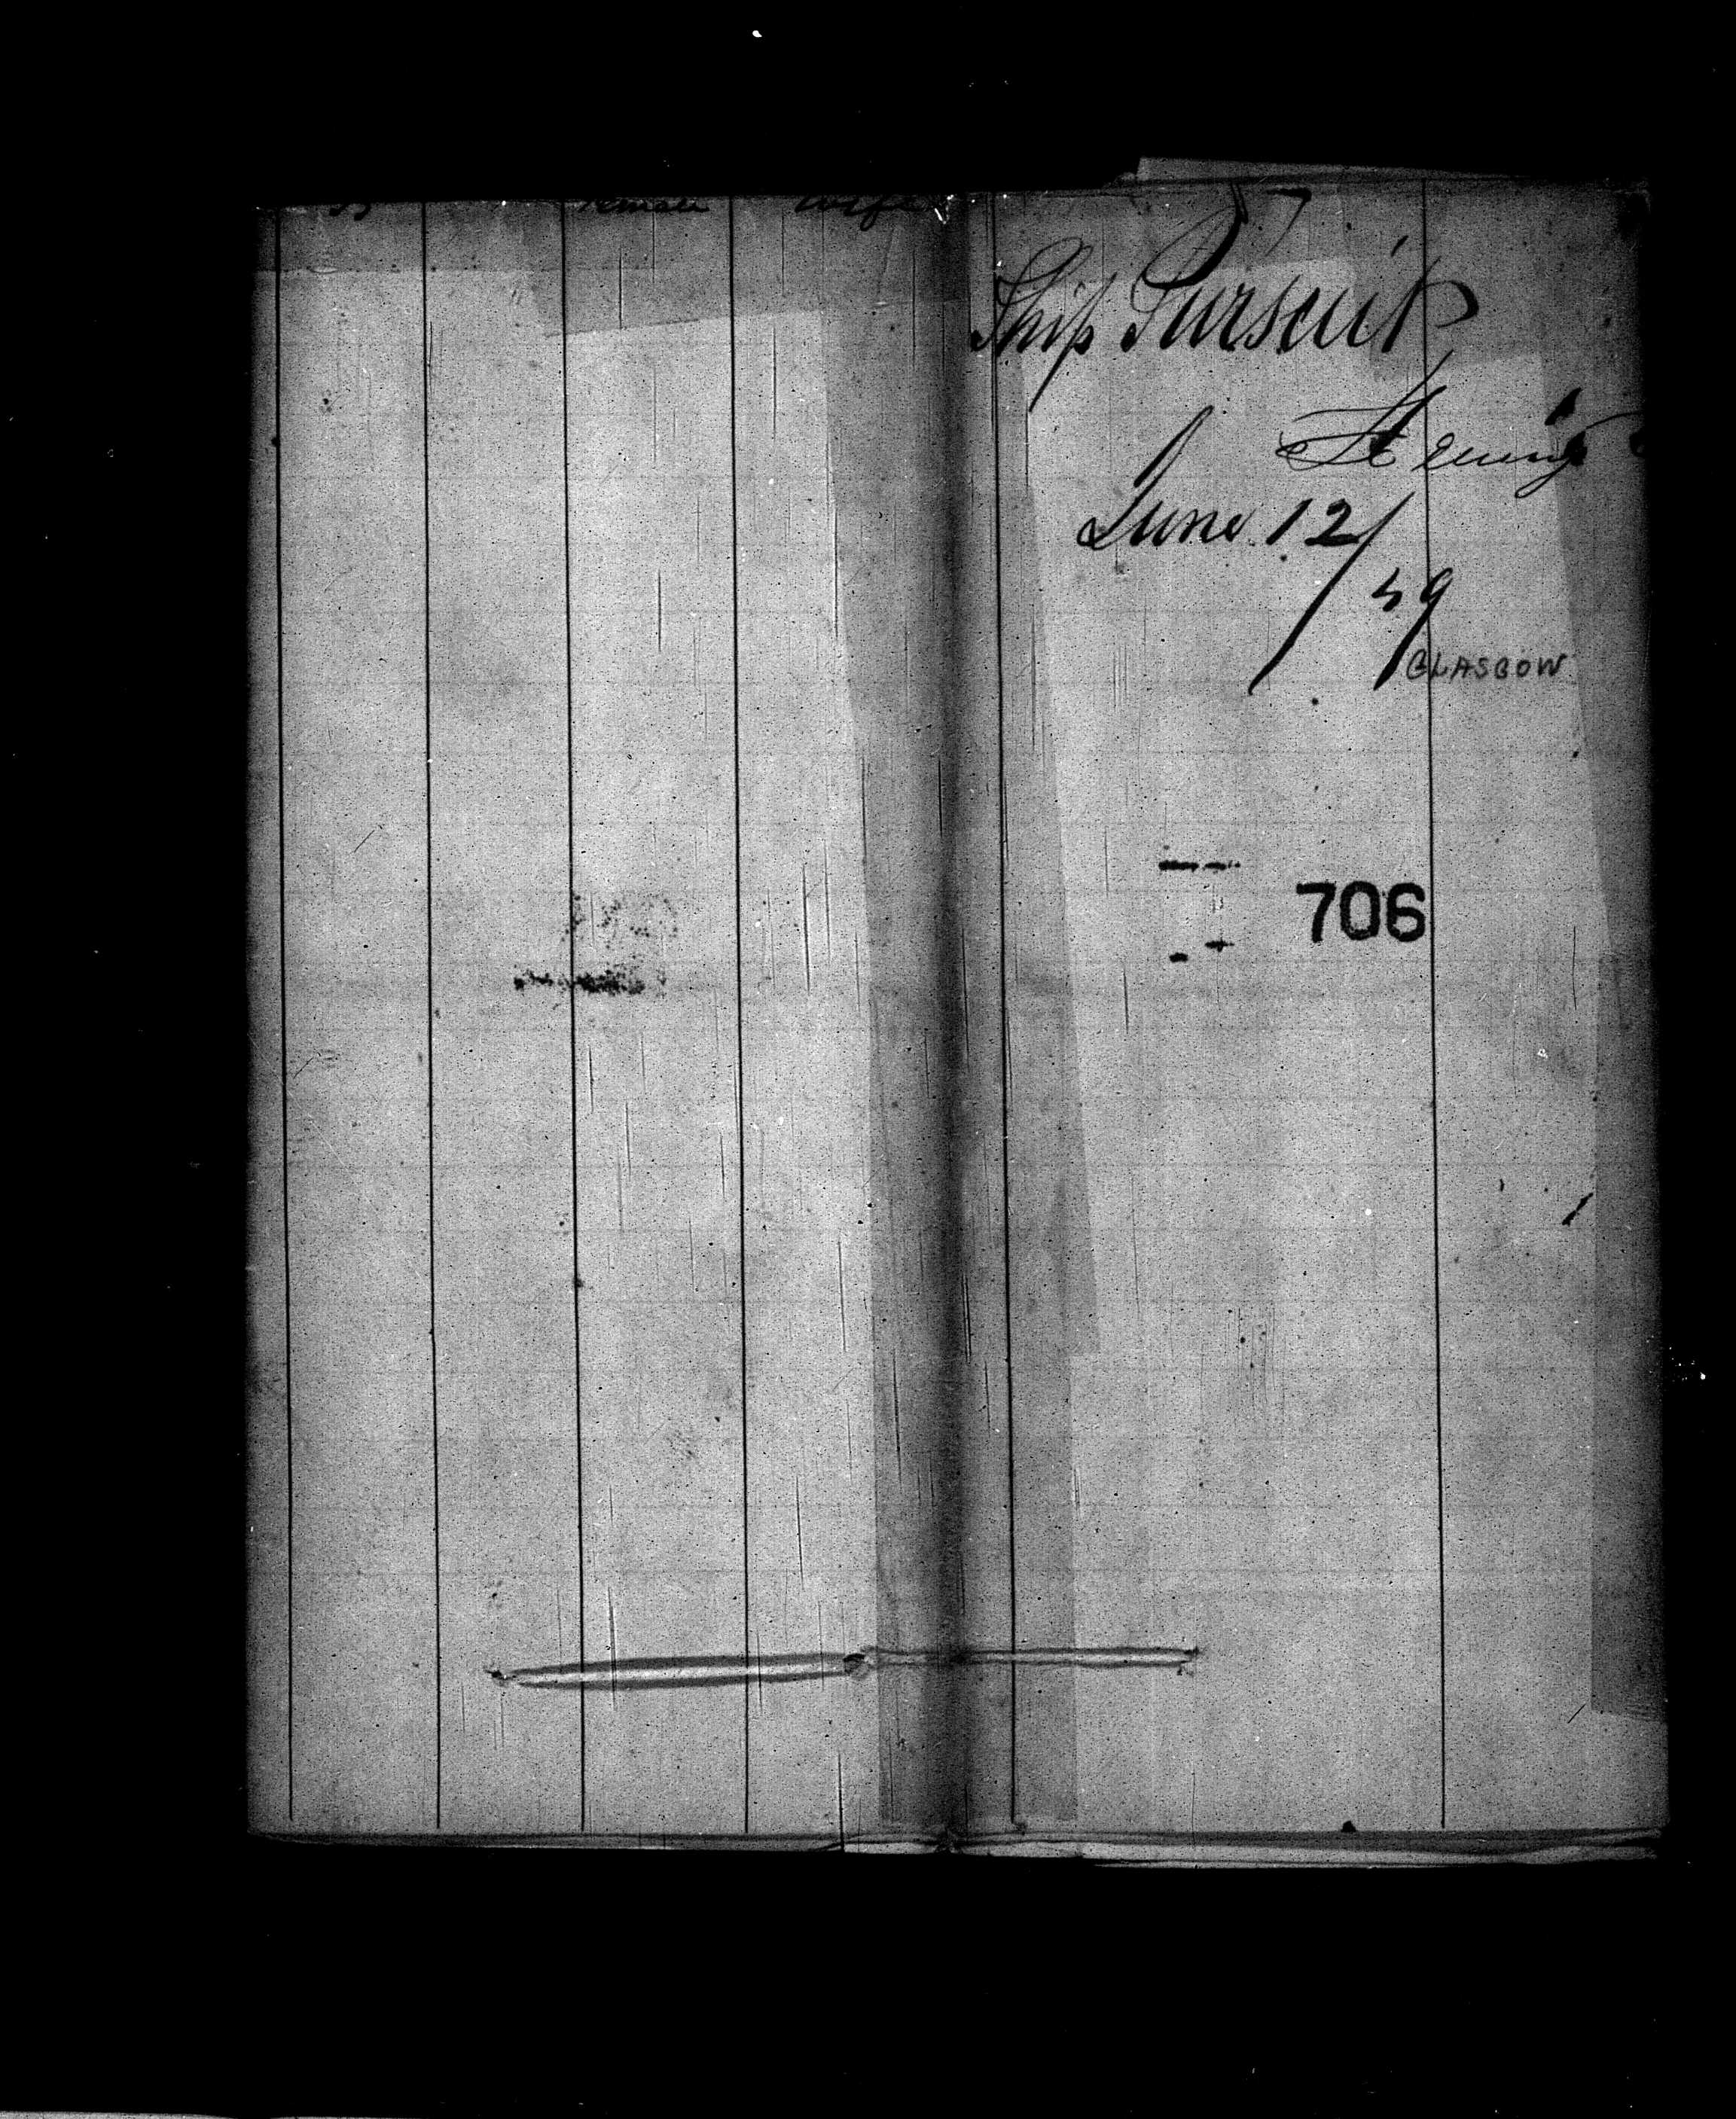 Female Wife
Ship Pursuit
June 12/
49
GLASGOW
706